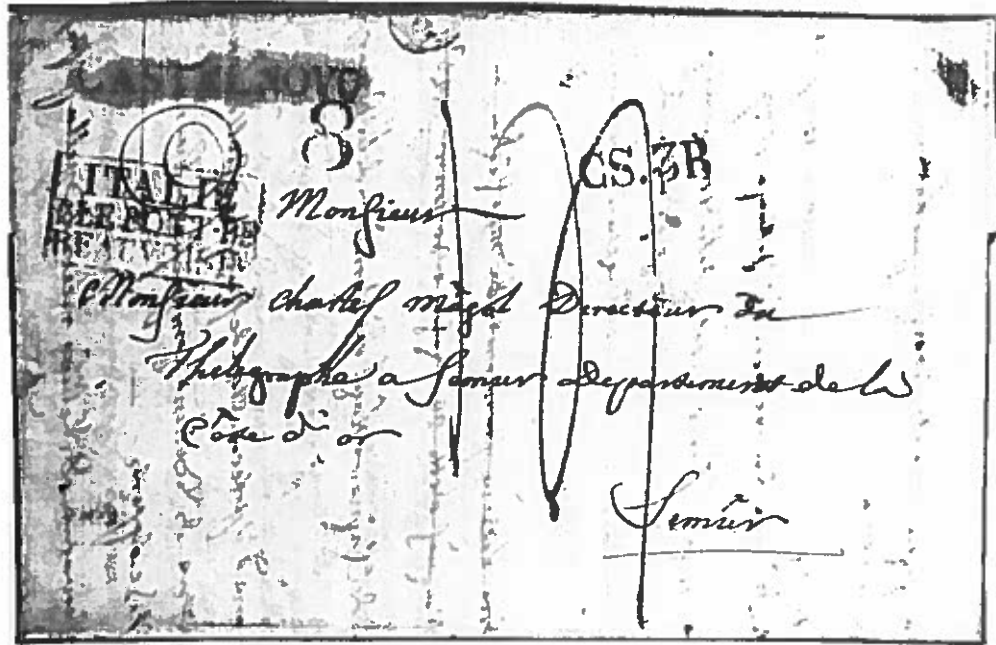 CASTELNOVO
CS.3R
ITALIE
PAR
LE PONT-DE
BEAUVOISIN
Monsieur
Monsieur Charles Magot Directeur du
Thelegraphe a Semur Departement de la
Côte d'or
Semur